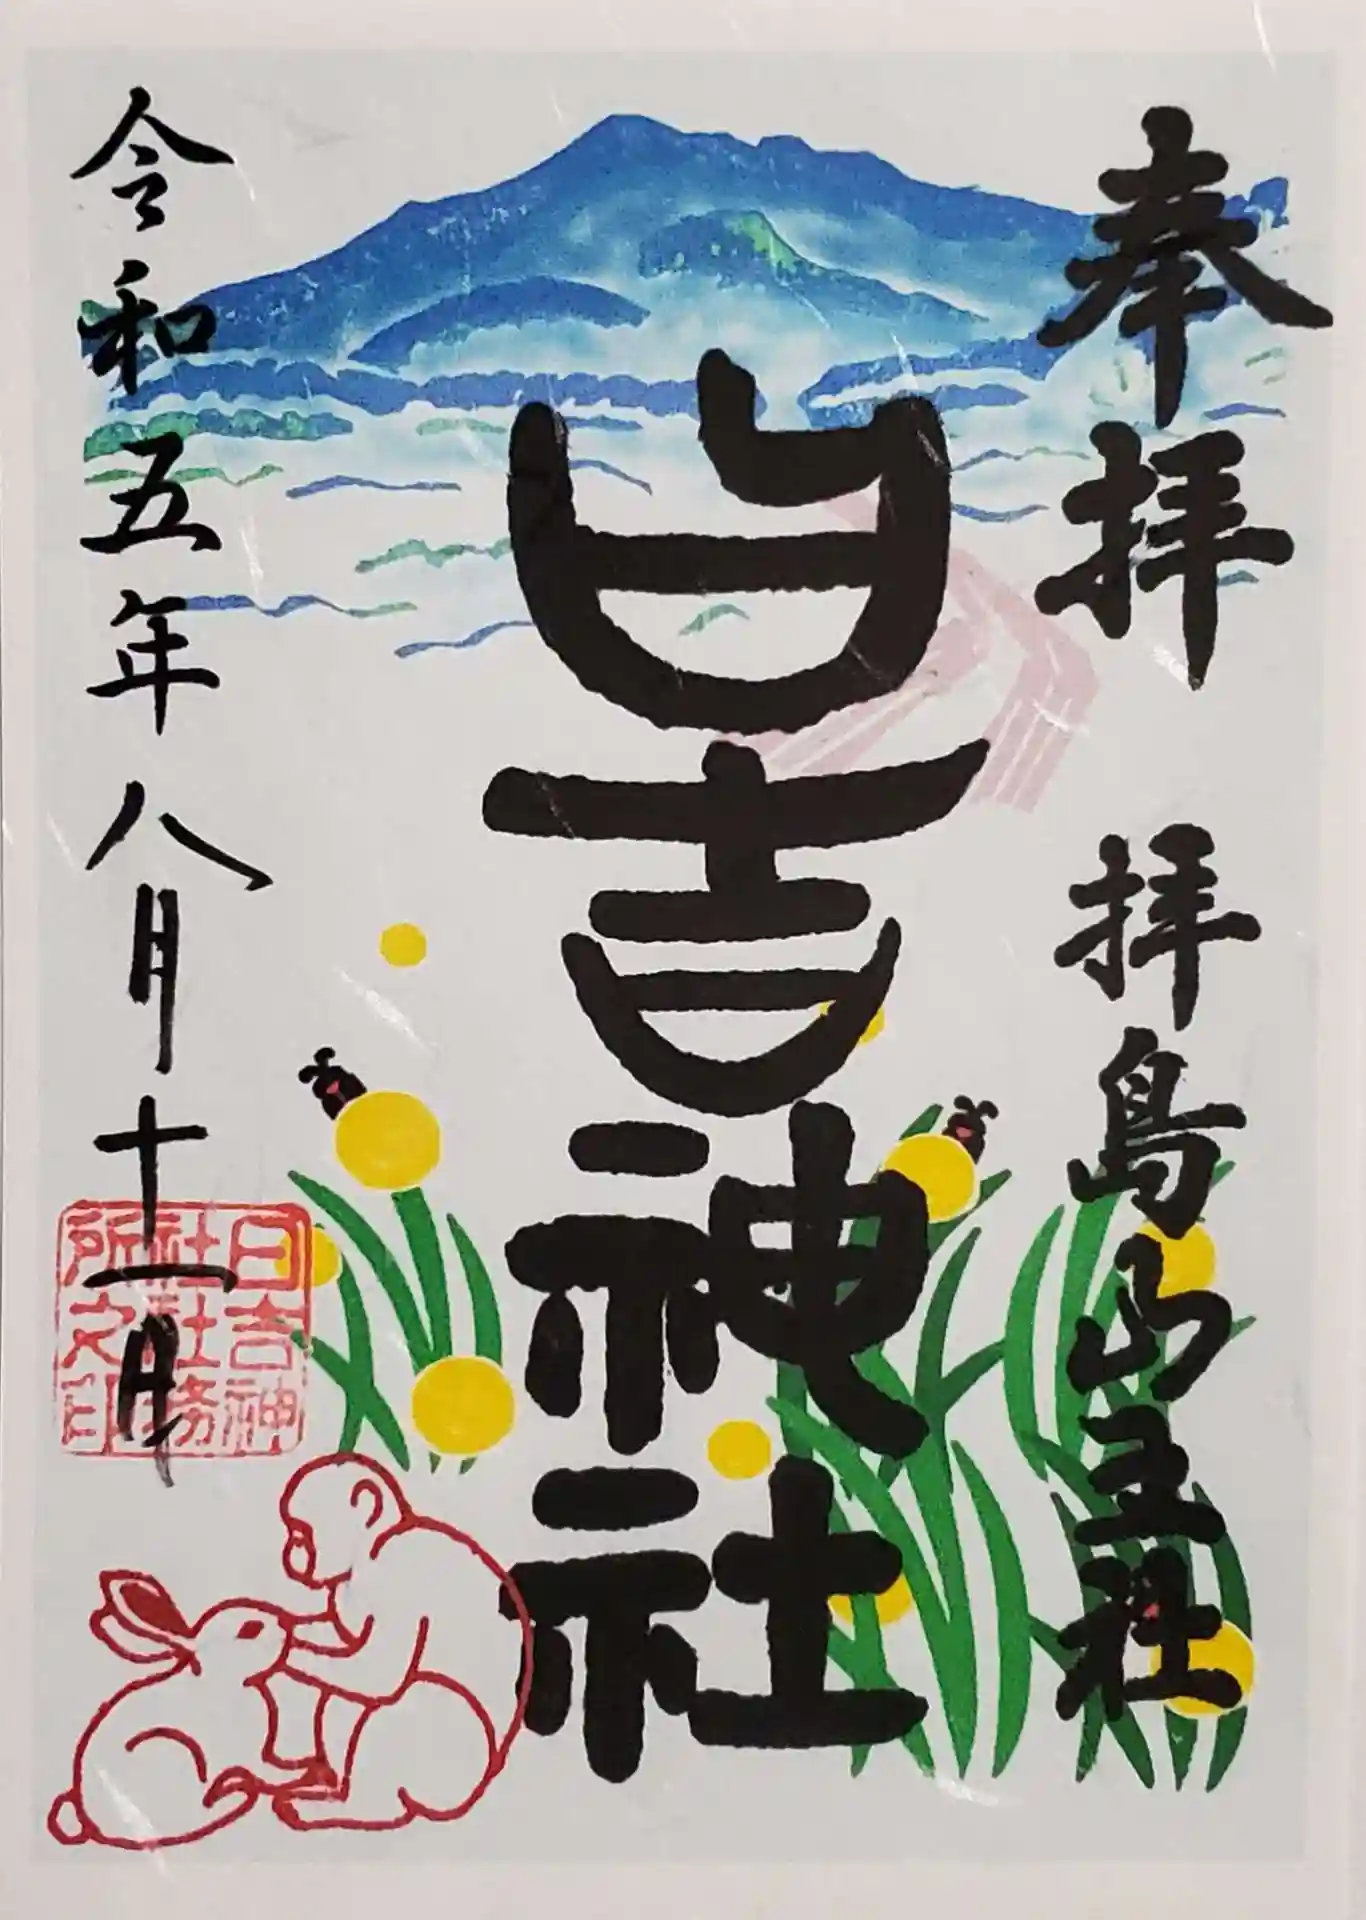 奉拝 拝島山王社
日吉神社
令和五年八月十一日
日吉神
社社務
所之印